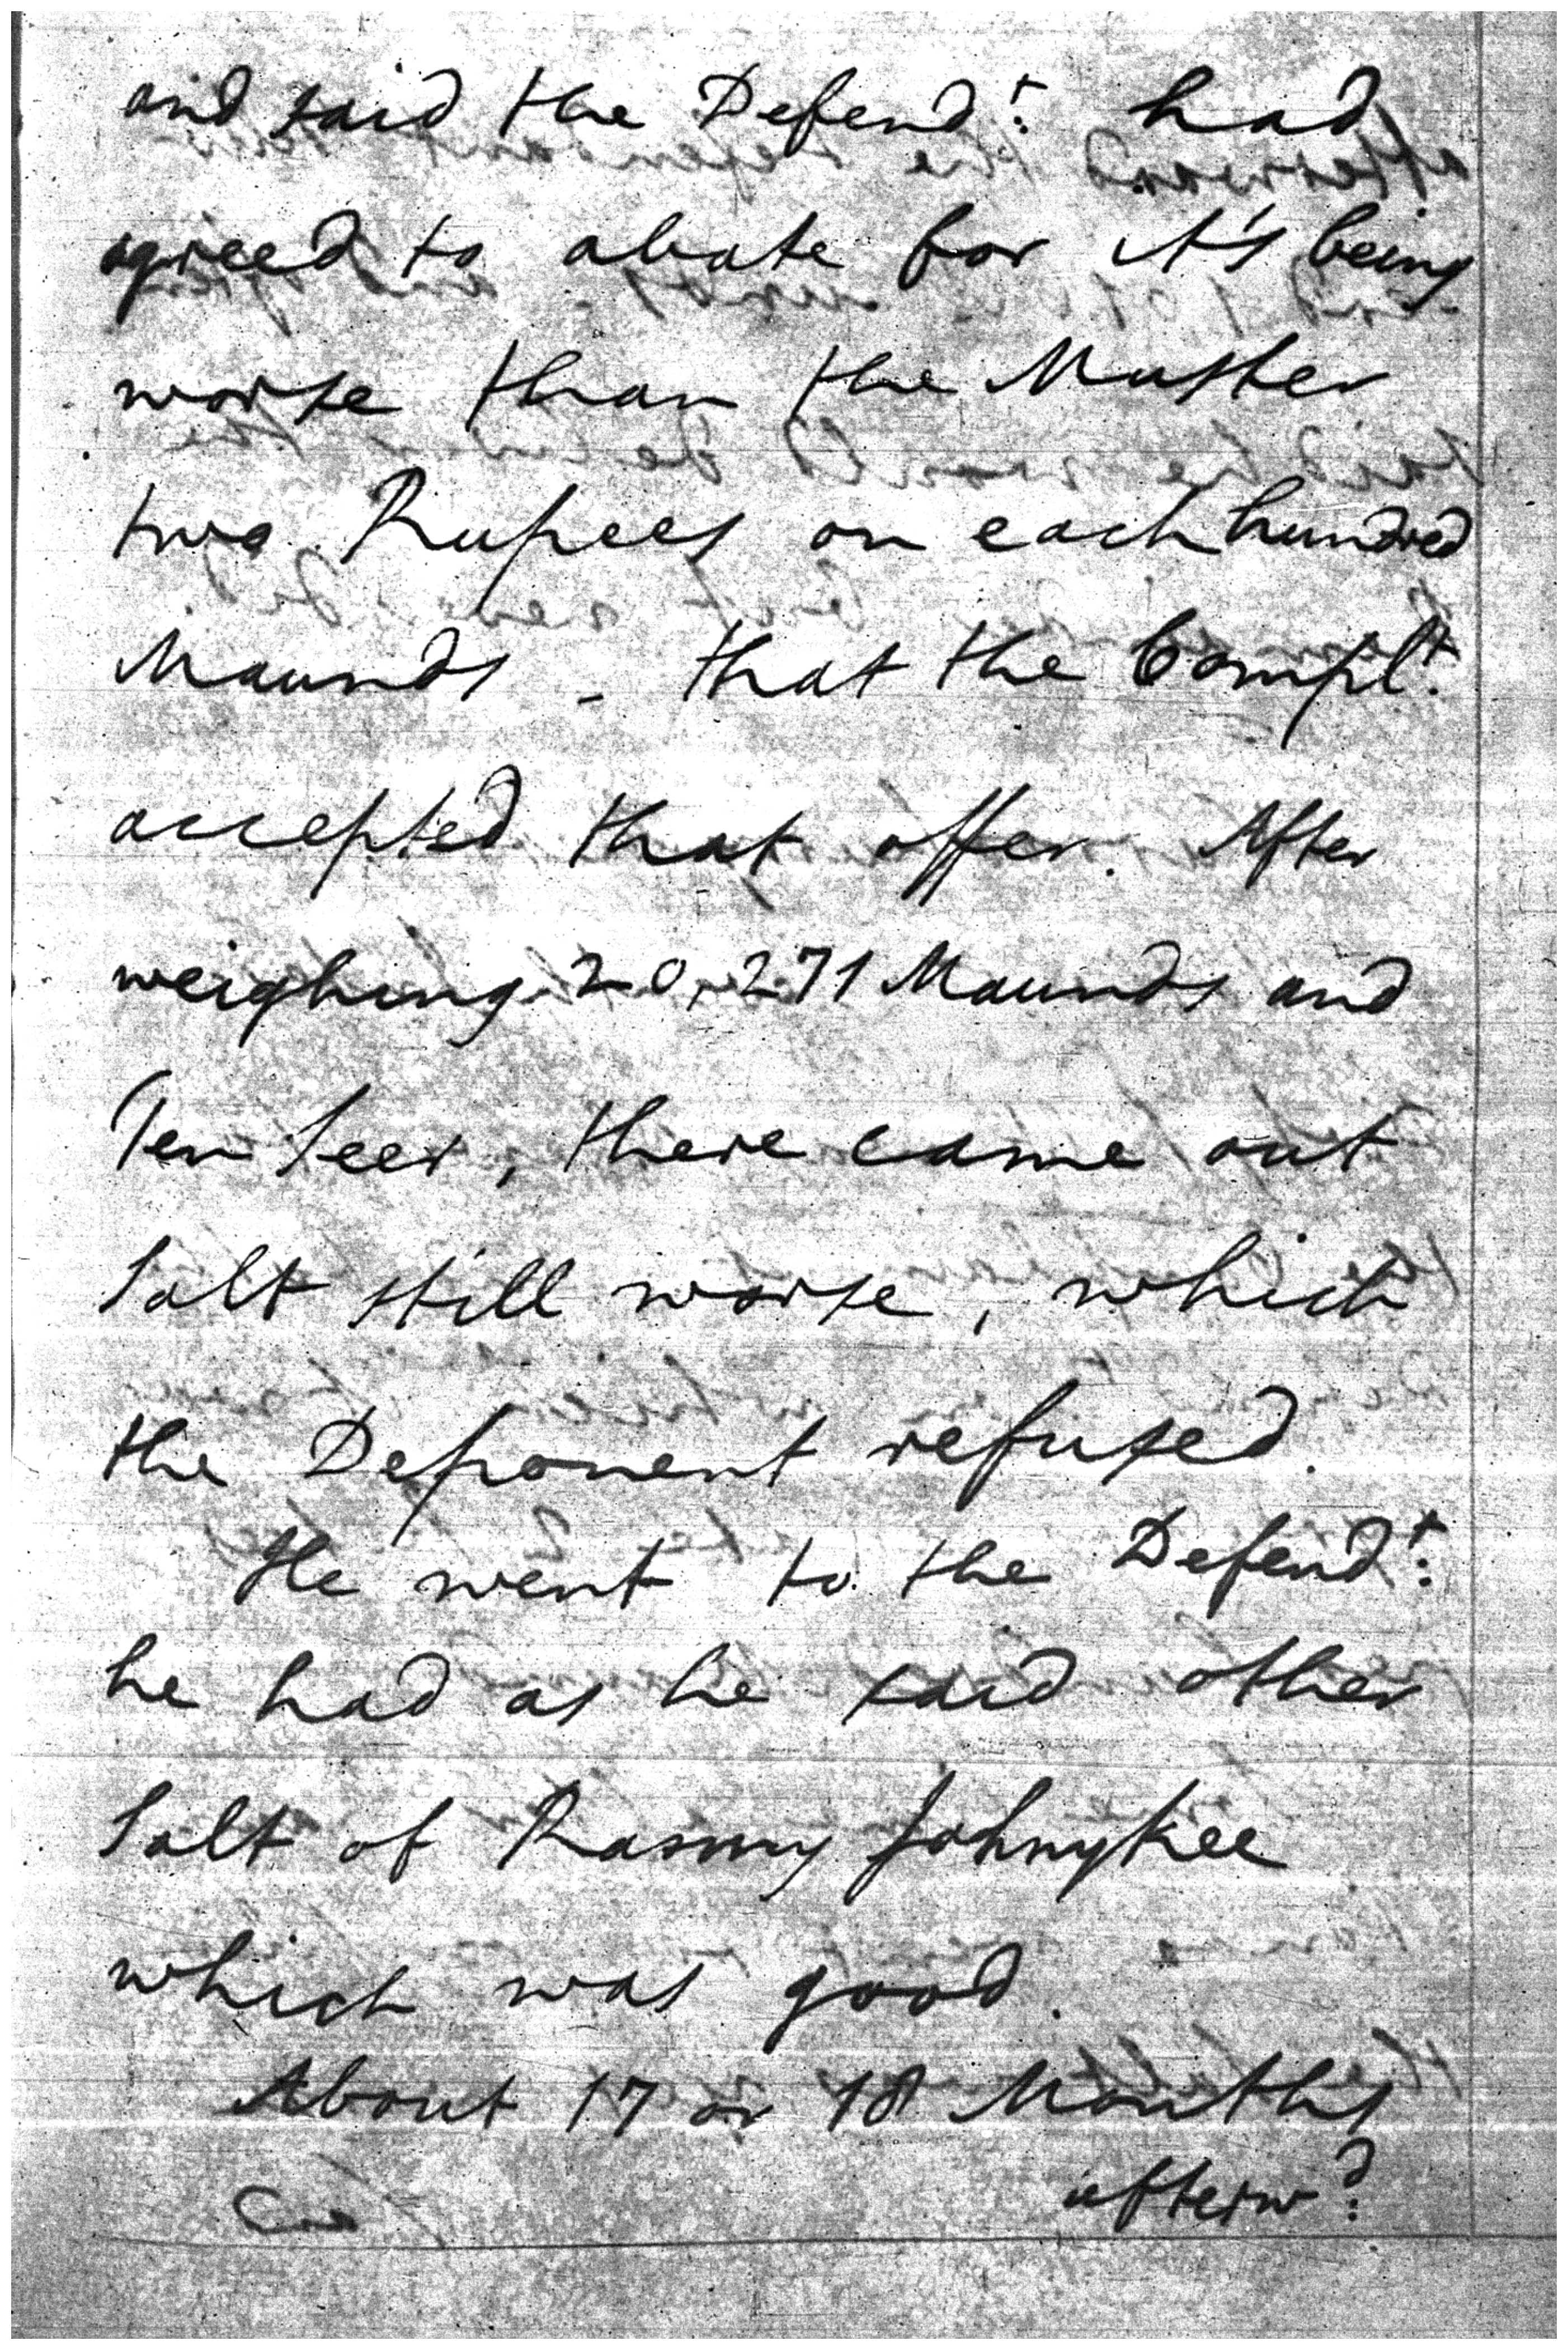 and said the Defend:t had
agreed to abate for it's being
worse than the Muster
two Rupees on each hundred
Maunds - that the Compl.t
accepted that offer. After
weighing 20,271 Maunds and
Ten Seer, there came out
Salt still worse, which
the Deponent refused.
He went to the Defend:t
he had as he said other
Salt of Rasmy Johnykee
which was good.
About 17 or 18 Months
afterw:d